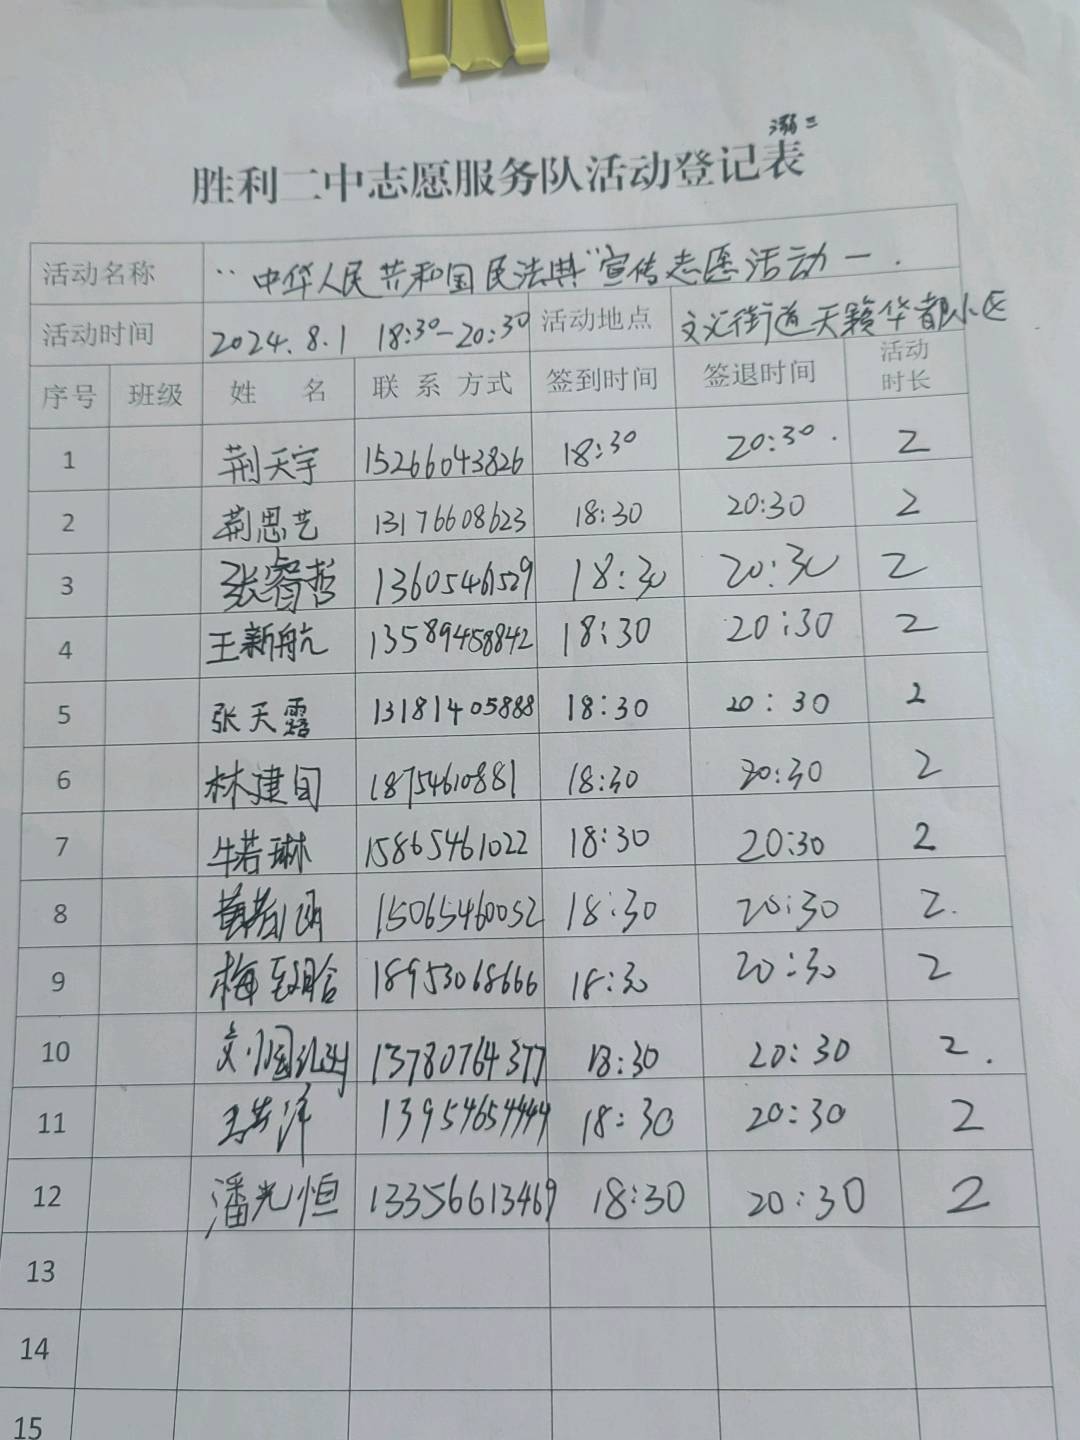 胜利二中志愿服务队活动登记表
活动名称 “中华人民共和国民法典”宣传志愿活动一.
活动时间 2024.8.1 18:30-20:30 活动地点 文汇街道天籁华都小区
序号 班级 姓 名 联系方式 签到时间 签退时间 活动时长
1 荆天宇 15266043826 18:30 20:30. 2
2 荆思艺 13176608623 18:30 20:30 2
3 张睿哲 13605461529 18:30 20:30 2
4 王新航 13589458842 18:30 20:30 2
5 张天露 13181405888 18:30 20:30 2
6 林建旬 18754610881 18:30 20:30 2
7 牛若琳 15865461022 18:30 20:30 2
8 15065460052 18:30 20:30 2.
9 梅 18953068666 18:30 20:30 2
10 13780764377 18:30 20:30 2.
11 13954654444 18:30 20:30 2
12 潘光恒 13356613469 18:30 20:30 2
13
14
15